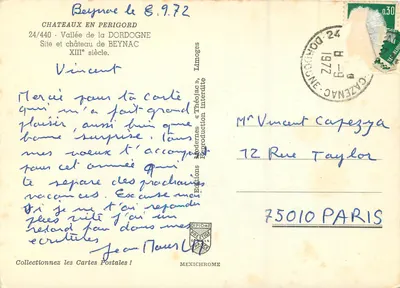 Beynac le 8.9.72
CHATEAUX EN PERIGORD
24/440 - Vallée de la DORDOGNE
Site et château de BEYNAC
XIIIe siècle.
Vincent
Merci pour ta carte
qui m'a fait grand
plaisir, aussi bien que
bonne surprise. Tous
mes voeux t'accompagnent
pour cet année qui
te separe des prochaines
vacances. Excuse moi
si je ne t'ai repondu
plus vite j'ai un
retard fou dans mes
ecritures
Jean Marc
Collectionnez les Cartes Postales !
Editions Lemovices « Théojac », Limoges
Reproduction interdite
MEXICHROME
0,30
24 DORDOGNE
CAZENAC
8 -9
1972
Mr Vincent Capezza
12 Rue Taylor
75010 PARIS